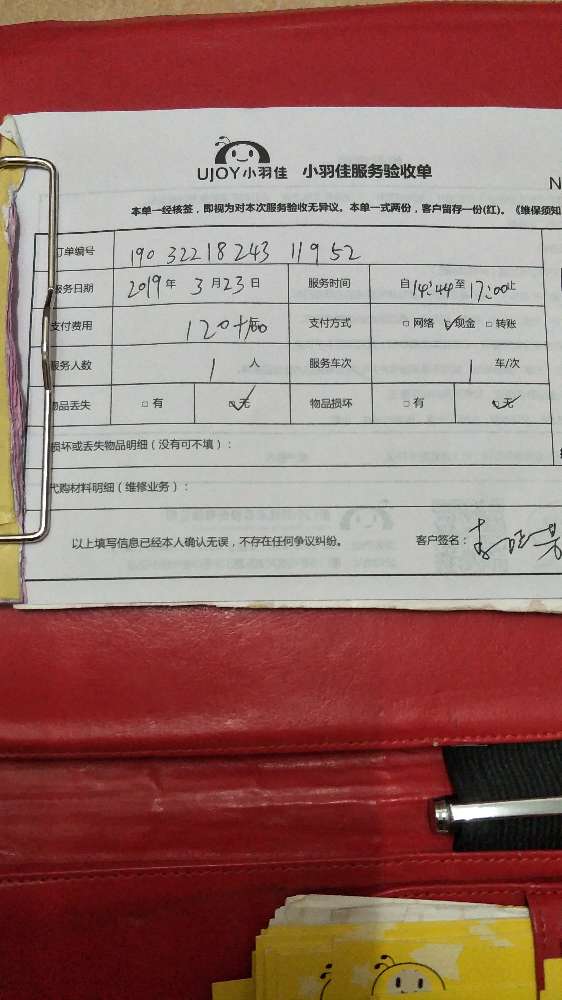 UJOY小羽佳 小羽佳服务验收单
N
本单一经核签，即视为对本次服务验收无异议。本单一式两份，客户留存一份(红)。《维保须知
订单编号 190 32218243 11952
服务日期 2019年 3月23日 服务时间 自14:44至17:00止
支付费用 120 支付方式 □网络 ☑现金 □转账
服务人数 1 人 服务车次 1 车/次
物品丢失 □有 ☑无 物品损坏 □有 ☑无
损坏或丢失物品明细（没有可不填）：
代购材料明细（维修业务）：
以上填写信息已经本人确认无误，不存在任何争议纠纷。 客户签名：李